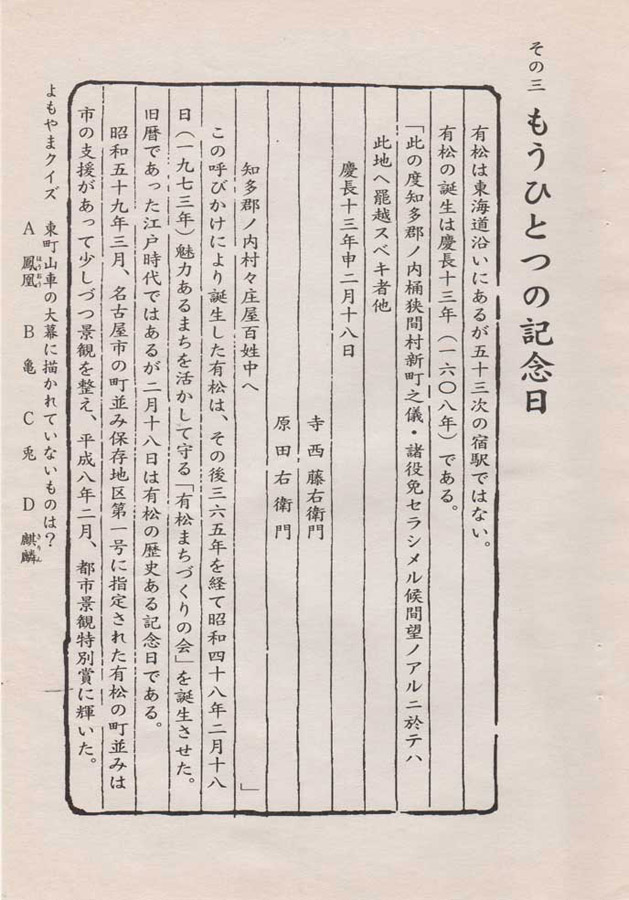 その三 もうひとつの記念日
有松は東海道沿いにあるが五十三次の宿駅ではない。
有松の誕生は慶長十三年（一六〇八年）である。
「此の度知多郡ノ内桶狭間村新町之儀・諸役免セラシメル候間望ノアルニ於テハ
此地へ罷越スベキ者他
慶長十三年申二月十八日
寺西藤右衛門
原田右衛門
知多郡ノ内村々庄屋百姓中へ 」
この呼びかけにより誕生した有松は、その後三六五年を経て昭和四十八年二月十八
日（一九七三年）魅力あるまちを活かして守る「有松まちづくりの会」を誕生させた。
旧暦であった江戸時代ではあるが二月十八日は有松の歴史ある記念日である。
昭和五十九年三月、名古屋市の町並み保存地区第一号に指定された有松の町並みは
市の支援があって少しづつ景観を整え、平成八年二月、都市景観特別賞に輝いた。
よもやまクイズ 東町山車の大幕に描かれていないものは？
A 鳳凰 B 亀 C 兎 D 麒麟